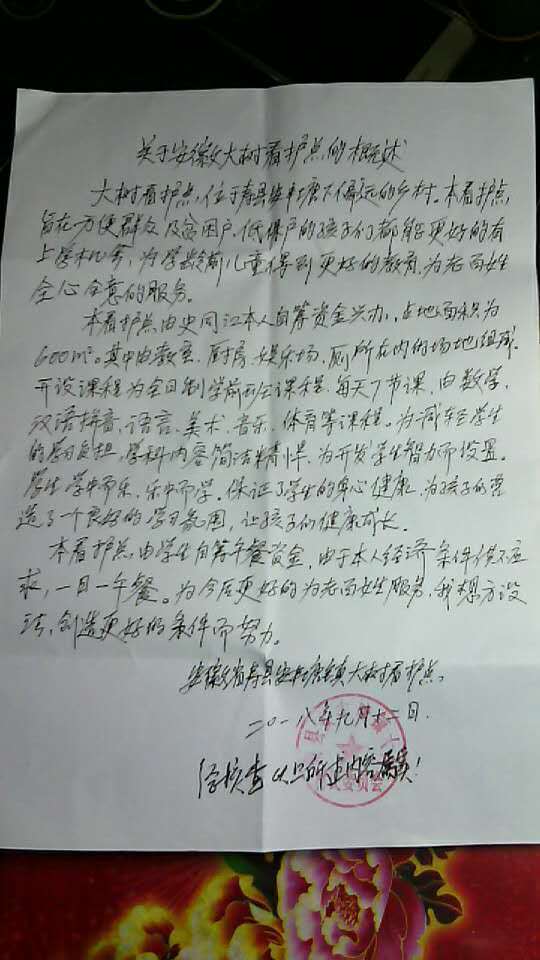 关于安徽大树看护点的概述
大树看护点,位于寿县安丰塘下偏远的乡村。本看护点,
旨在方便群众及贫困户、低保户的孩子们都能更好的有
上学机会,为学龄前儿童得到更好的教育,为老百姓
全心全意的服务。
本看护点由史同江本人自筹资金兴办,占地面积为
600㎡。其中由教室、厨房、娱乐场、厕所在内的场地组成,
开设课程为全日制学前班全课程,每天7节课,由数学、
汉语拼音、语言、美术、音乐、体育等课程。为减轻学生
的学习负担,学科内容简洁精悍,为开发学生智力而设置。
学生学中而乐,乐中而学。保证了学生的身心健康,为孩子们营
造了个良好的学习氛围,让孩子们健康成长。
本看护点,由学生自筹午餐资金,由于本人经济条件供不应
求,一日一午餐。为今后更好的为老百姓服务,我想方设
法,创造更好的条件而努力。
安徽省寿县安丰塘镇大树看护点。
二〇一八年九月十二日.
经核查以上所述内容属实!
县
委员会